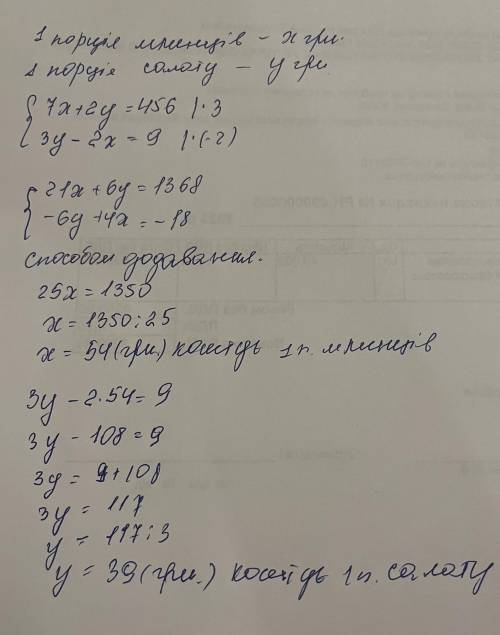 1 порція млинців - х грн.
1 порція салату - у грн.
7х+2у=456 |·3
3у-2х=9 |·(-2)
21х+6у=1368
-6у+4х=-18
способом додавання.
25х=1350
х=1350:25
х=54(грн.) коштує 1 п. млинців
3у-2·54=9
3у-108=9
3у=9+108
3у=117
у=117:3
у=39(грн.) коштує 1 п. салату